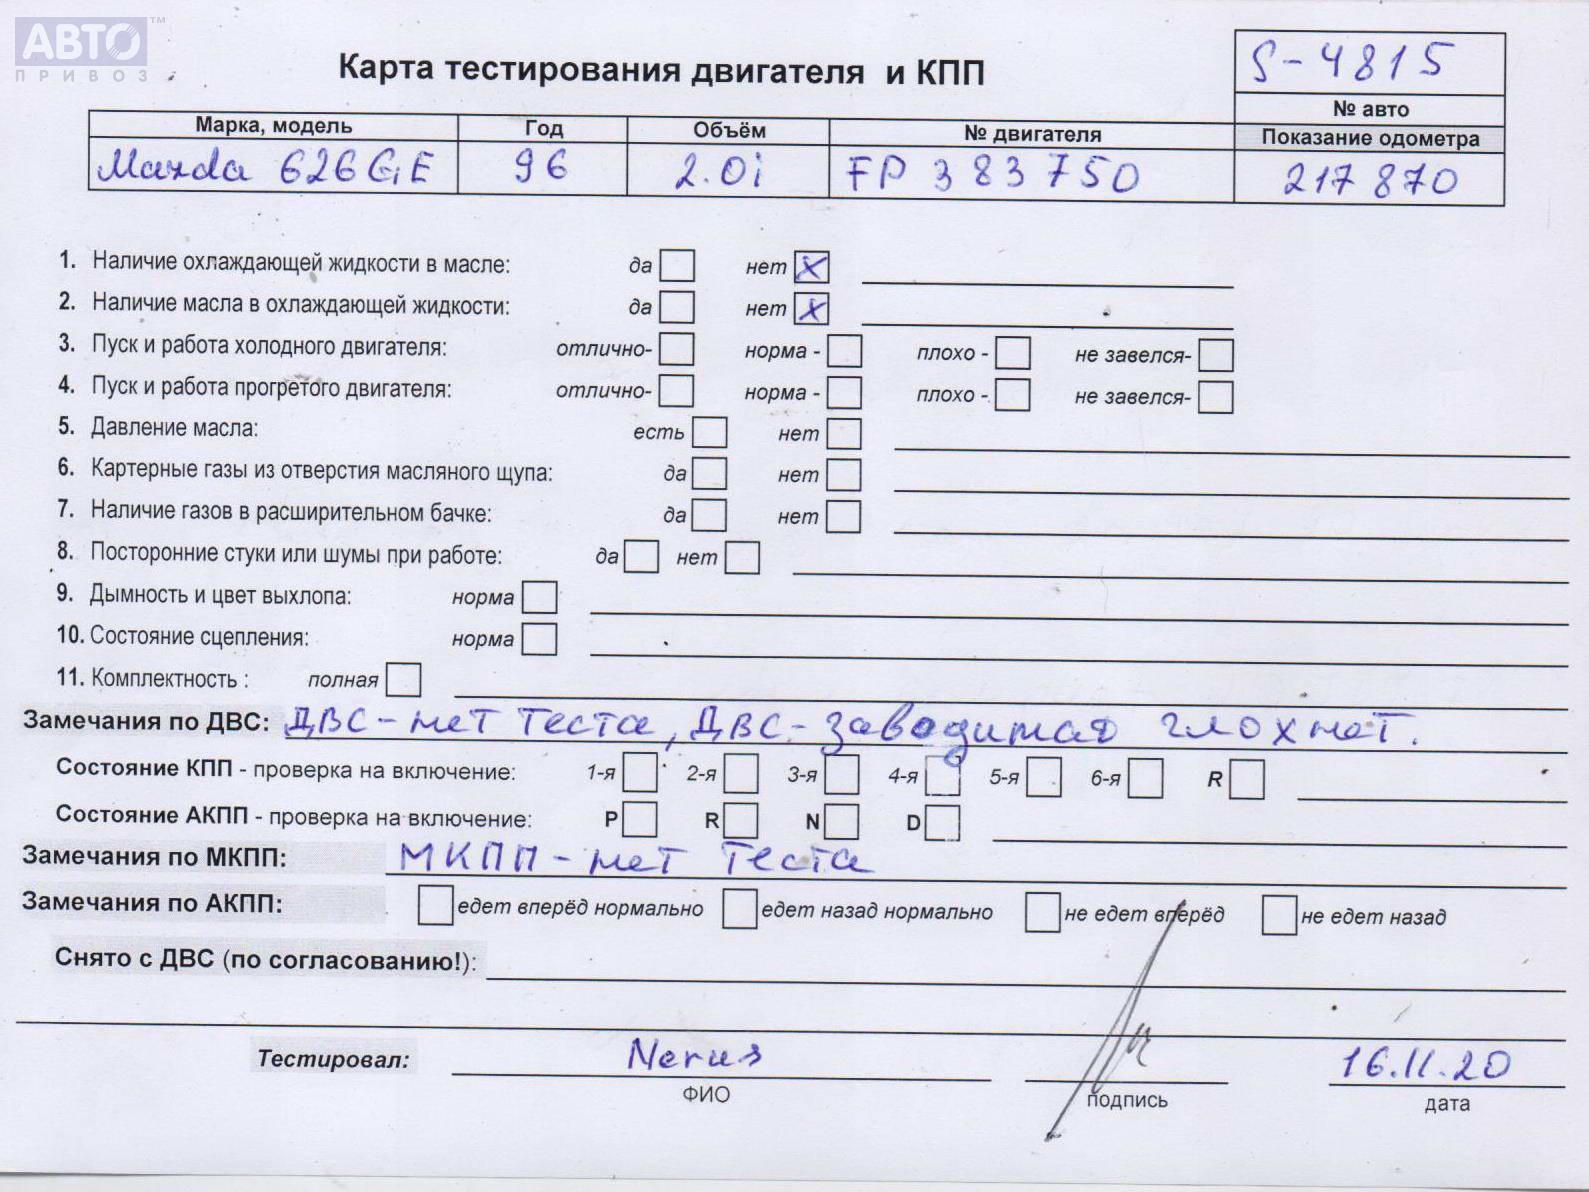 АВТО™
ПРИВОЗ
Карта тестирования двигателя и КПП
S-4815
№ авто
Марка, модель Год Объём № двигателя Показание одометра
Mazda 626 GE 96 2.0i FP 383750 217 870
1. Наличие охлаждающей жидкости в масле: да нет X
2. Наличие масла в охлаждающей жидкости: да нет X
3. Пуск и работа холодного двигателя: отлично- норма - плохо - не завелся-
4. Пуск и работа прогретого двигателя: отлично- норма - плохо - не завелся-
5. Давление масла: есть нет
6. Картерные газы из отверстия масляного щупа: да нет
7. Наличие газов в расширительном бачке: да нет
8. Посторонние стуки или шумы при работе: да нет
9. Дымность и цвет выхлопа: норма
10. Состояние сцепления: норма
11. Комплектность : полная
Замечания по ДВС: ДВС-нет теста, ДВС-заводится глохнет.
Состояние КПП - проверка на включение: 1-я 2-я 3-я 4-я 5-я 6-я R
Состояние АКПП - проверка на включение: P R N D
Замечания по МКПП: МКПП-нет теста
Замечания по АКПП: едет вперёд нормально едет назад нормально не едет вперёд не едет назад
Снято с ДВС (по согласованию!):
Тестировал: 16.11.20
ФИО подпись дата